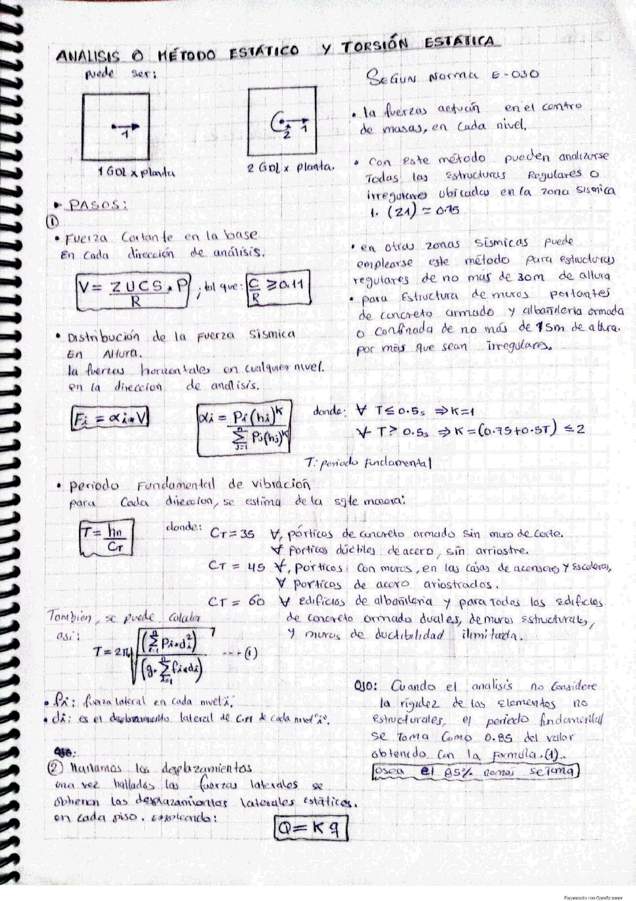 ANALISIS O MÉTODO ESTÁTICO Y TORSIÓN ESTÁTICA
puede ser:
SEGUN Norma E-030
1
2 1
1 GDL x planta
2 GDL x planta.
• la fuerzas actuan en el centro
de masas, en cada nivel.
• con este método pueden analizarse
Todas las Estructuras Regulares o
irregulares ubicadas en la zona sismica
1. (Z1) = 0.15
► PASOS:
①
• Fuerza Cortante en la base
en cada dirección de análisis.
V = ZUCS . P / R ; tal que: C/R ≥ 0.11
• en otras zonas sísmicas puede
emplearse este método para estructuras
regulares de no más de 30m de altura
• para Estructura de muros portantes
de concreto armado y albañileria armada
o confinada de no más de 15m de altura.
por más que sean irregulares.
• Distribución de la Fuerza Sismica
En Altura.
la fuerzas horizontales en cualquier nivel.
en la direccion de analisis.
Fi = αi . V
αi = Pi(hi)^k / Σ^n_{j=1} Pj(hj)^k
donde: ∀ T ≤ 0.5s ⇒ K=1
∀ T > 0.5s ⇒ K = (0.75+0.5T) ≤ 2
T: periodo fundamental
• periodo Fundamental de vibracion
para cada direccion, se estima de la sgte manera:
T = hn / CT
donde: CT = 35 ∀, pórticos de concreto armado sin muro de corte.
∀ porticos dúctiles de acero, sin arriostre.
CT = 45 ∀, porticos con muros, en las cajas de ascensores y escaleras,
∀ porticos de acero arriostrados.
CT = 60 ∀ edificios de albañileria y para Todos los edificios
de concreto armado duales, de muros estructurales,
y muros de ductibilidad ilimitada.
También, se puede calcular
asi:
T = 2π √ (Σ^n_{i=1} Pi . di²) / (g . Σ^n_{i=1} fi . di) --- (1)
• fi: fuerza lateral en cada nivel i.
• di: es el desplazamiento lateral de cm de cada nivel "i".
OJO: Cuando el analisis no considere
la rigidez de los elementos no
estructurales, el periodo fundamental
se toma como 0.85 del valor
obtenido con la formula. (1).
osea el 85%
② Hallamos los desplazamientos
una vez hallados las fuerzas laterales se
obtienen los desplazamientos laterales estáticos.
en cada piso. empleando:
Q = K q
Escaneado con CamScanner